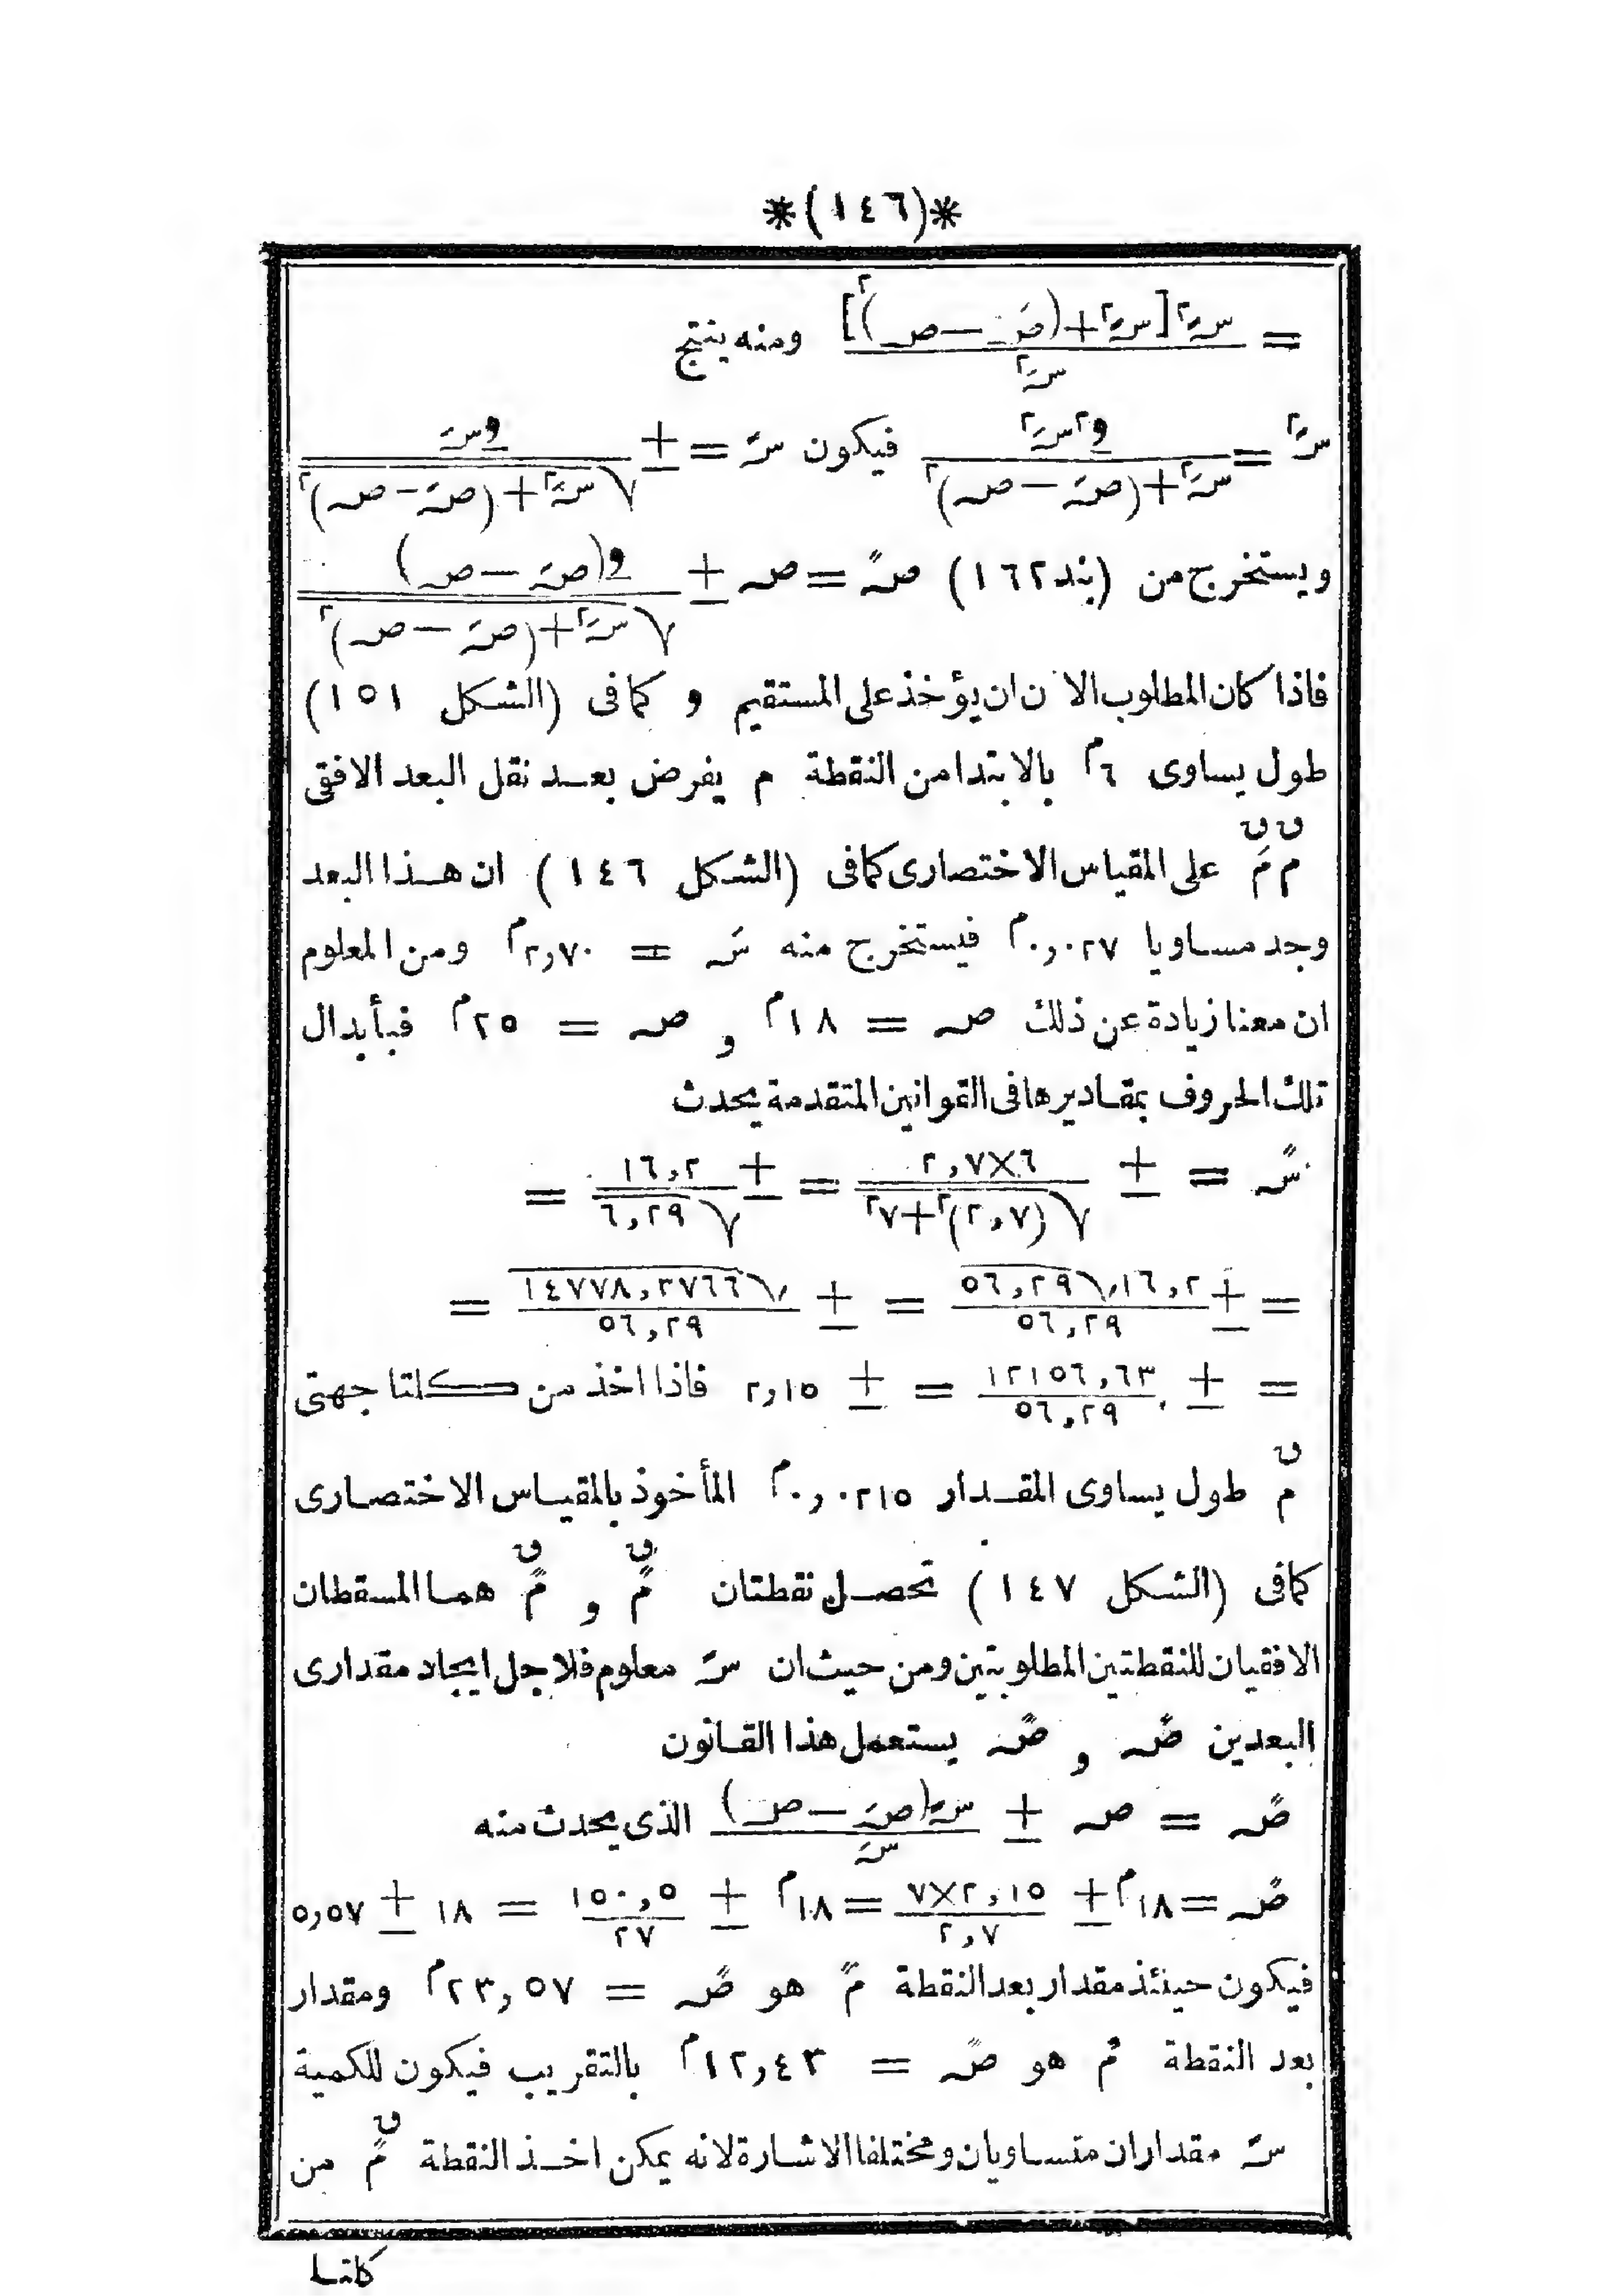 *(١٤٦)*
= سً٢[سَ٢+(صَ – ص)٢] / سَ٢ ومنه ينتج
سً٢ = و٢سَ٢ / سَ٢+(صَ – ص)٢ فيكون سً = ± وسَ / √سَ٢+(صَ – ص)٢
ويستخرج من (بند١٦٢) صً = ص ± و(صَ – ص) / √سَ٢+(صَ – ص)٢
فاذا كان المطلوب الا ن ان يؤخذ على المستقيم و كما فى (الشكل ١٥١)
طول يساوى ٦م بالابتدا من النقطة م يفرض بعد نقل البعد الافقى
م مَ على المقياس الاختصارى كما فى (الشكل ١٤٦) ان هذا البعد
وجد مساويا ٠,٠٢٧م فيستخرج منه سَ = ٢,٧٠م ومن المعلوم
ان معنا زيادة عن ذلك ص = ١٨م و ص = ٢٥م فبأبدال
تلك الحروف بمقاديرها فى القوانين المتقدمة يحدث
سً = ± ٢,٧×٦ / √(٢,٧)٢+٧٢ = ± ١٦,٢ / √٦,٢٩ =
= ± ١٦,٢√٥٦,٢٩ / ٥٦,٢٩ = ± √١٤٧٧٨,٣٧٦٦ / ٥٦,٢٩ =
= ± ١٢١٥٦,٦٣ / ٥٦,٢٩ = ± ٢,١٥ فاذا اخذ من كلتا جهتى
م طول يساوى المقدار ٠,٠٢١٥م المأخوذ بالمقياس الاختصارى
كما فى (الشكل ١٤٧) تحصل نقطتان مً و مً هما المسقطان
الافقيان للنقطتين المطلوبتين ومن حيث ان سً معلوم فلاجل ايجاد مقدارى
البعدين صً و صً يستعمل هذا القانون
صً = ص ± سً(صَ – ص) / سَ الذى يحدث منه
صً = ١٨م ± ٧×٢,١٥ / ٢,٧ = ١٨م ± ١٥٠,٥ / ٢٧ = ١٨ ± ٥,٥٧
فيكون حينئذ مقدار بعد النقطة مً هو صً = ٢٣,٥٧م ومقدار
بعد النقطة مً هو صً = ١٢,٤٣م بالتقريب فيكون للكمية
سً مقداران متساويان ومختلفا الاشارة لانه يمكن اخذ النقطة مً من
كلتا